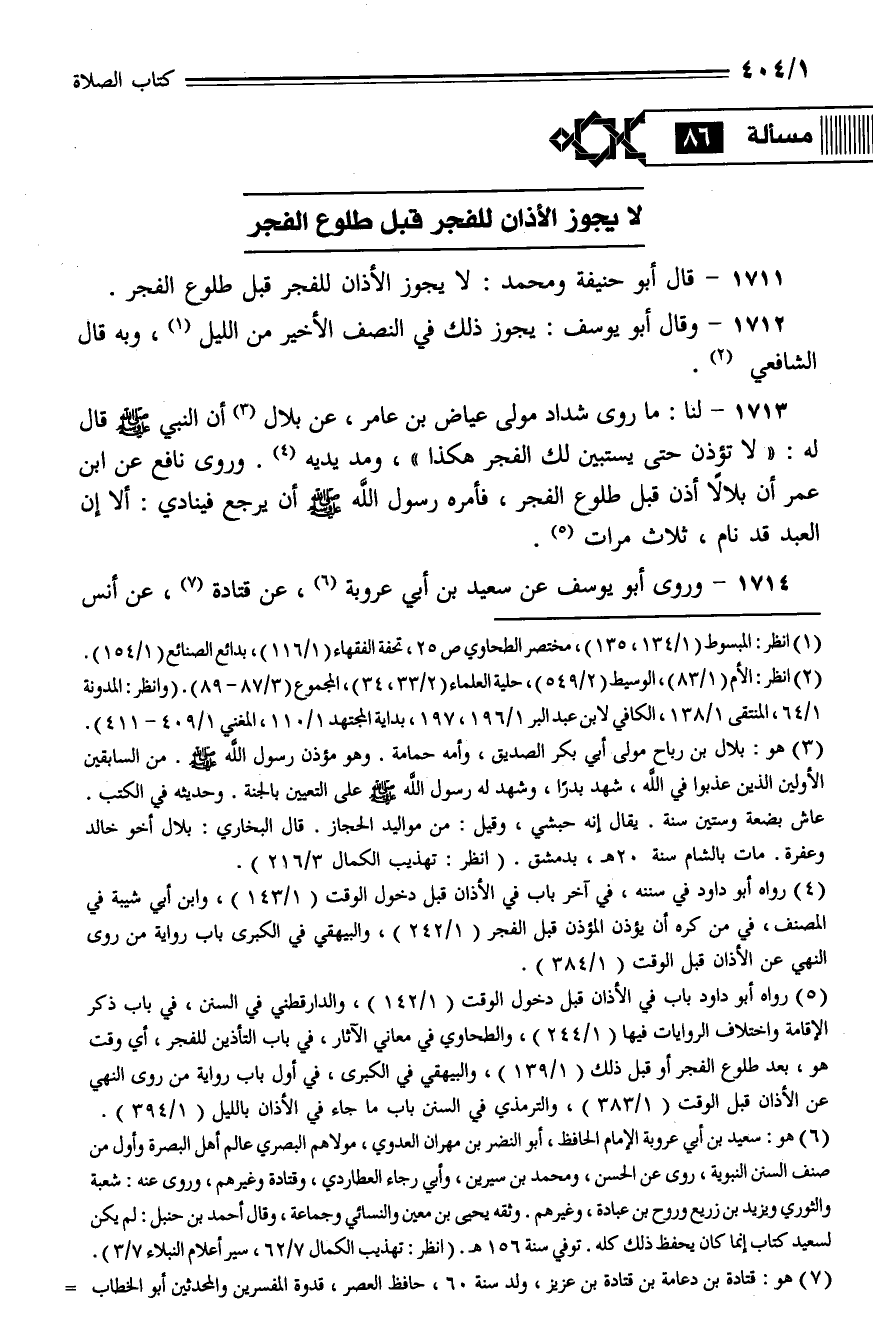 ٤٠٤/١ كتاب الصلاة
مسألة ٨٦
لا يجوز الأذان للفجر قبل طلوع الفجر
١٧١١ - قال أبو حنيفة ومحمد : لا يجوز الأذان للفجر قبل طلوع الفجر .
١٧١٢ - وقال أبو يوسف : يجوز ذلك في النصف الأخير من الليل (١) ، وبه قال
الشافعي (٢) .
١٧١٣ - لنا : ما روى شداد مولى عياض بن عامر ، عن بلال (٣) أن النبي ﷺ قال
له : « لا تؤذن حتى يستبين لك الفجر هكذا » ، ومد يديه (٤) . وروى نافع عن ابن
عمر أن بلالًا أذن قبل طلوع الفجر ، فأمره رسول اللَّه ﷺ أن يرجع فينادي : ألا إن
العبد قد نام ، ثلاث مرات (٥) .
١٧١٤ - وروى أبو يوسف عن سعيد بن أبي عروبة (٦) ، عن قتادة (٧) ، عن أنس
(١) انظر : المبسوط (١٣٤/١ ، ١٣٥) ، مختصر الطحاوي ص ٢٥ ، تحفة الفقهاء (١١٦/١) ، بدائع الصنائع (١٥٤/١) .
(٢) انظر : الأم (٨٣/١) ، الوسيط (٥٤٩/٢) ، حلية العلماء (٣٣/٢ ، ٣٤) ، المجموع (٨٧/٣ - ٨٩) . (وانظر : المدونة
٦٤/١ ، المنتقى ١٣٨/١ ، الكافي لابن عبد البر ١٩٦/١ ، ١٩٧ ، بداية المجتهد ١١٠/١ ، المغني ٤٠٩/١ - ٤١١) .
(٣) هو : بلال بن رباح مولى أبي بكر الصديق ، وأمه حمامة . وهو مؤذن رسول اللَّه ﷺ . من السابقين
الأولين الذين عذبوا في اللَّه ، شهد بدرًا ، وشهد له رسول اللَّه ﷺ على التعيين بالجنة . وحديثه في الكتب .
عاش بضعة وستين سنة . يقال إنه حبشي ، وقيل : من مواليد الحجاز . قال البخاري : بلال أخو خالد
وعفرة . مات بالشام سنة ٢٠هـ ، بدمشق . ( انظر : تهذيب الكمال ٢١٦/٣ ) .
(٤) رواه أبو داود في سننه ، في آخر باب في الأذان قبل دخول الوقت ( ١٤٣/١ ) ، وابن أبي شيبة في
المصنف ، في من كره أن يؤذن المؤذن قبل الفجر ( ٢٤٢/١ ) ، والبيهقي في الكبرى باب رواية من روى
النهي عن الأذان قبل الوقت ( ٣٨٤/١ ) .
(٥) رواه أبو داود باب في الأذان قبل دخول الوقت ( ١٤٢/١ ) ، والدارقطني في السنن ، في باب ذكر
الإقامة واختلاف الروايات فيها ( ٢٤٤/١ ) ، والطحاوي في معاني الآثار ، في باب التأذين للفجر ، أي وقت
هو ، بعد طلوع الفجر أو قبل ذلك ( ١٣٩/١ ) ، والبيهقي في الكبرى ، في أول باب رواية من روى النهي
عن الأذان قبل الوقت ( ٣٨٣/١ ) ، والترمذي في السنن باب ما جاء في الأذان بالليل ( ٣٩٤/١ ) .
(٦) هو : سعيد بن أبي عروبة الإمام الحافظ ، أبو النضر بن مهران العدوي ، مولاهم البصري عالم أهل البصرة وأول من
صنف السنن النبوية ، روى عن الحسن ، ومحمد بن سيرين ، وأبي رجاء العطاردي ، وقتادة وغيرهم ، وروى عنه : شعبة
والثوري ويزيد بن زريع وروح بن عبادة ، وغيرهم . وثقه يحيى بن معين والنسائي وجماعة ، وقال أحمد بن حنبل : لم يكن
لسعيد كتاب إنما كان يحفظ ذلك كله . توفي سنة ١٥٦ هـ . ( انظر : تهذيب الكمال ٦٢/٧ ، سير أعلام النبلاء ٣/٧ ) .
(٧) هو : قتادة بن دعامة بن قتادة بن عزيز ، ولد سنة ٦٠ ، حافظ العصر ، قدوة المفسرين والمحدثين أبو الخطاب =